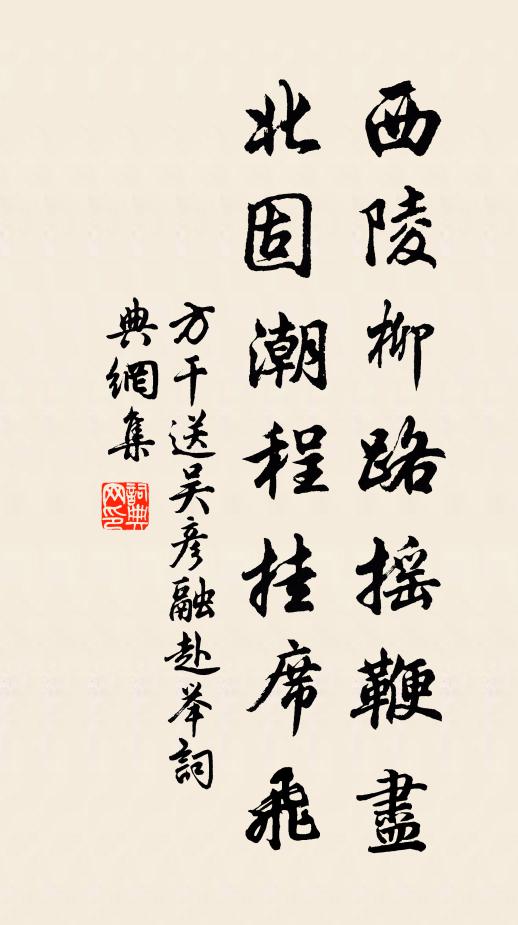 西陵柳路摇鞭盡
北固潮程挂席飛
方干送吴彦融赴举詞
典網集
詞典网印